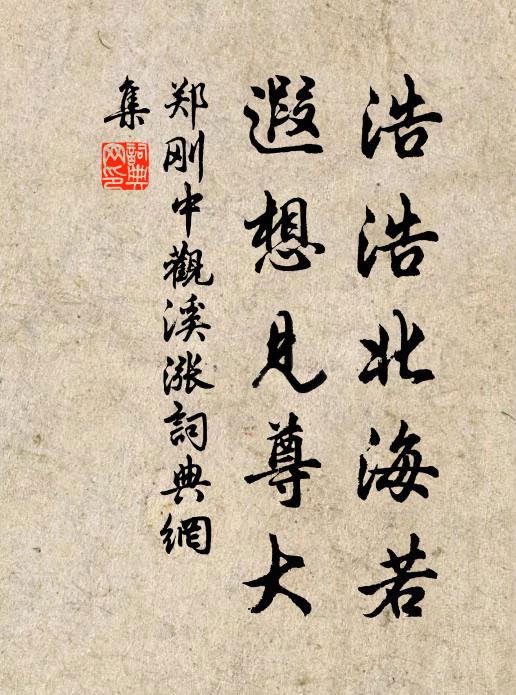 浩浩北海若
遐想見尊大
郑刚中觀溪漲詞典網
集
詞典
网印